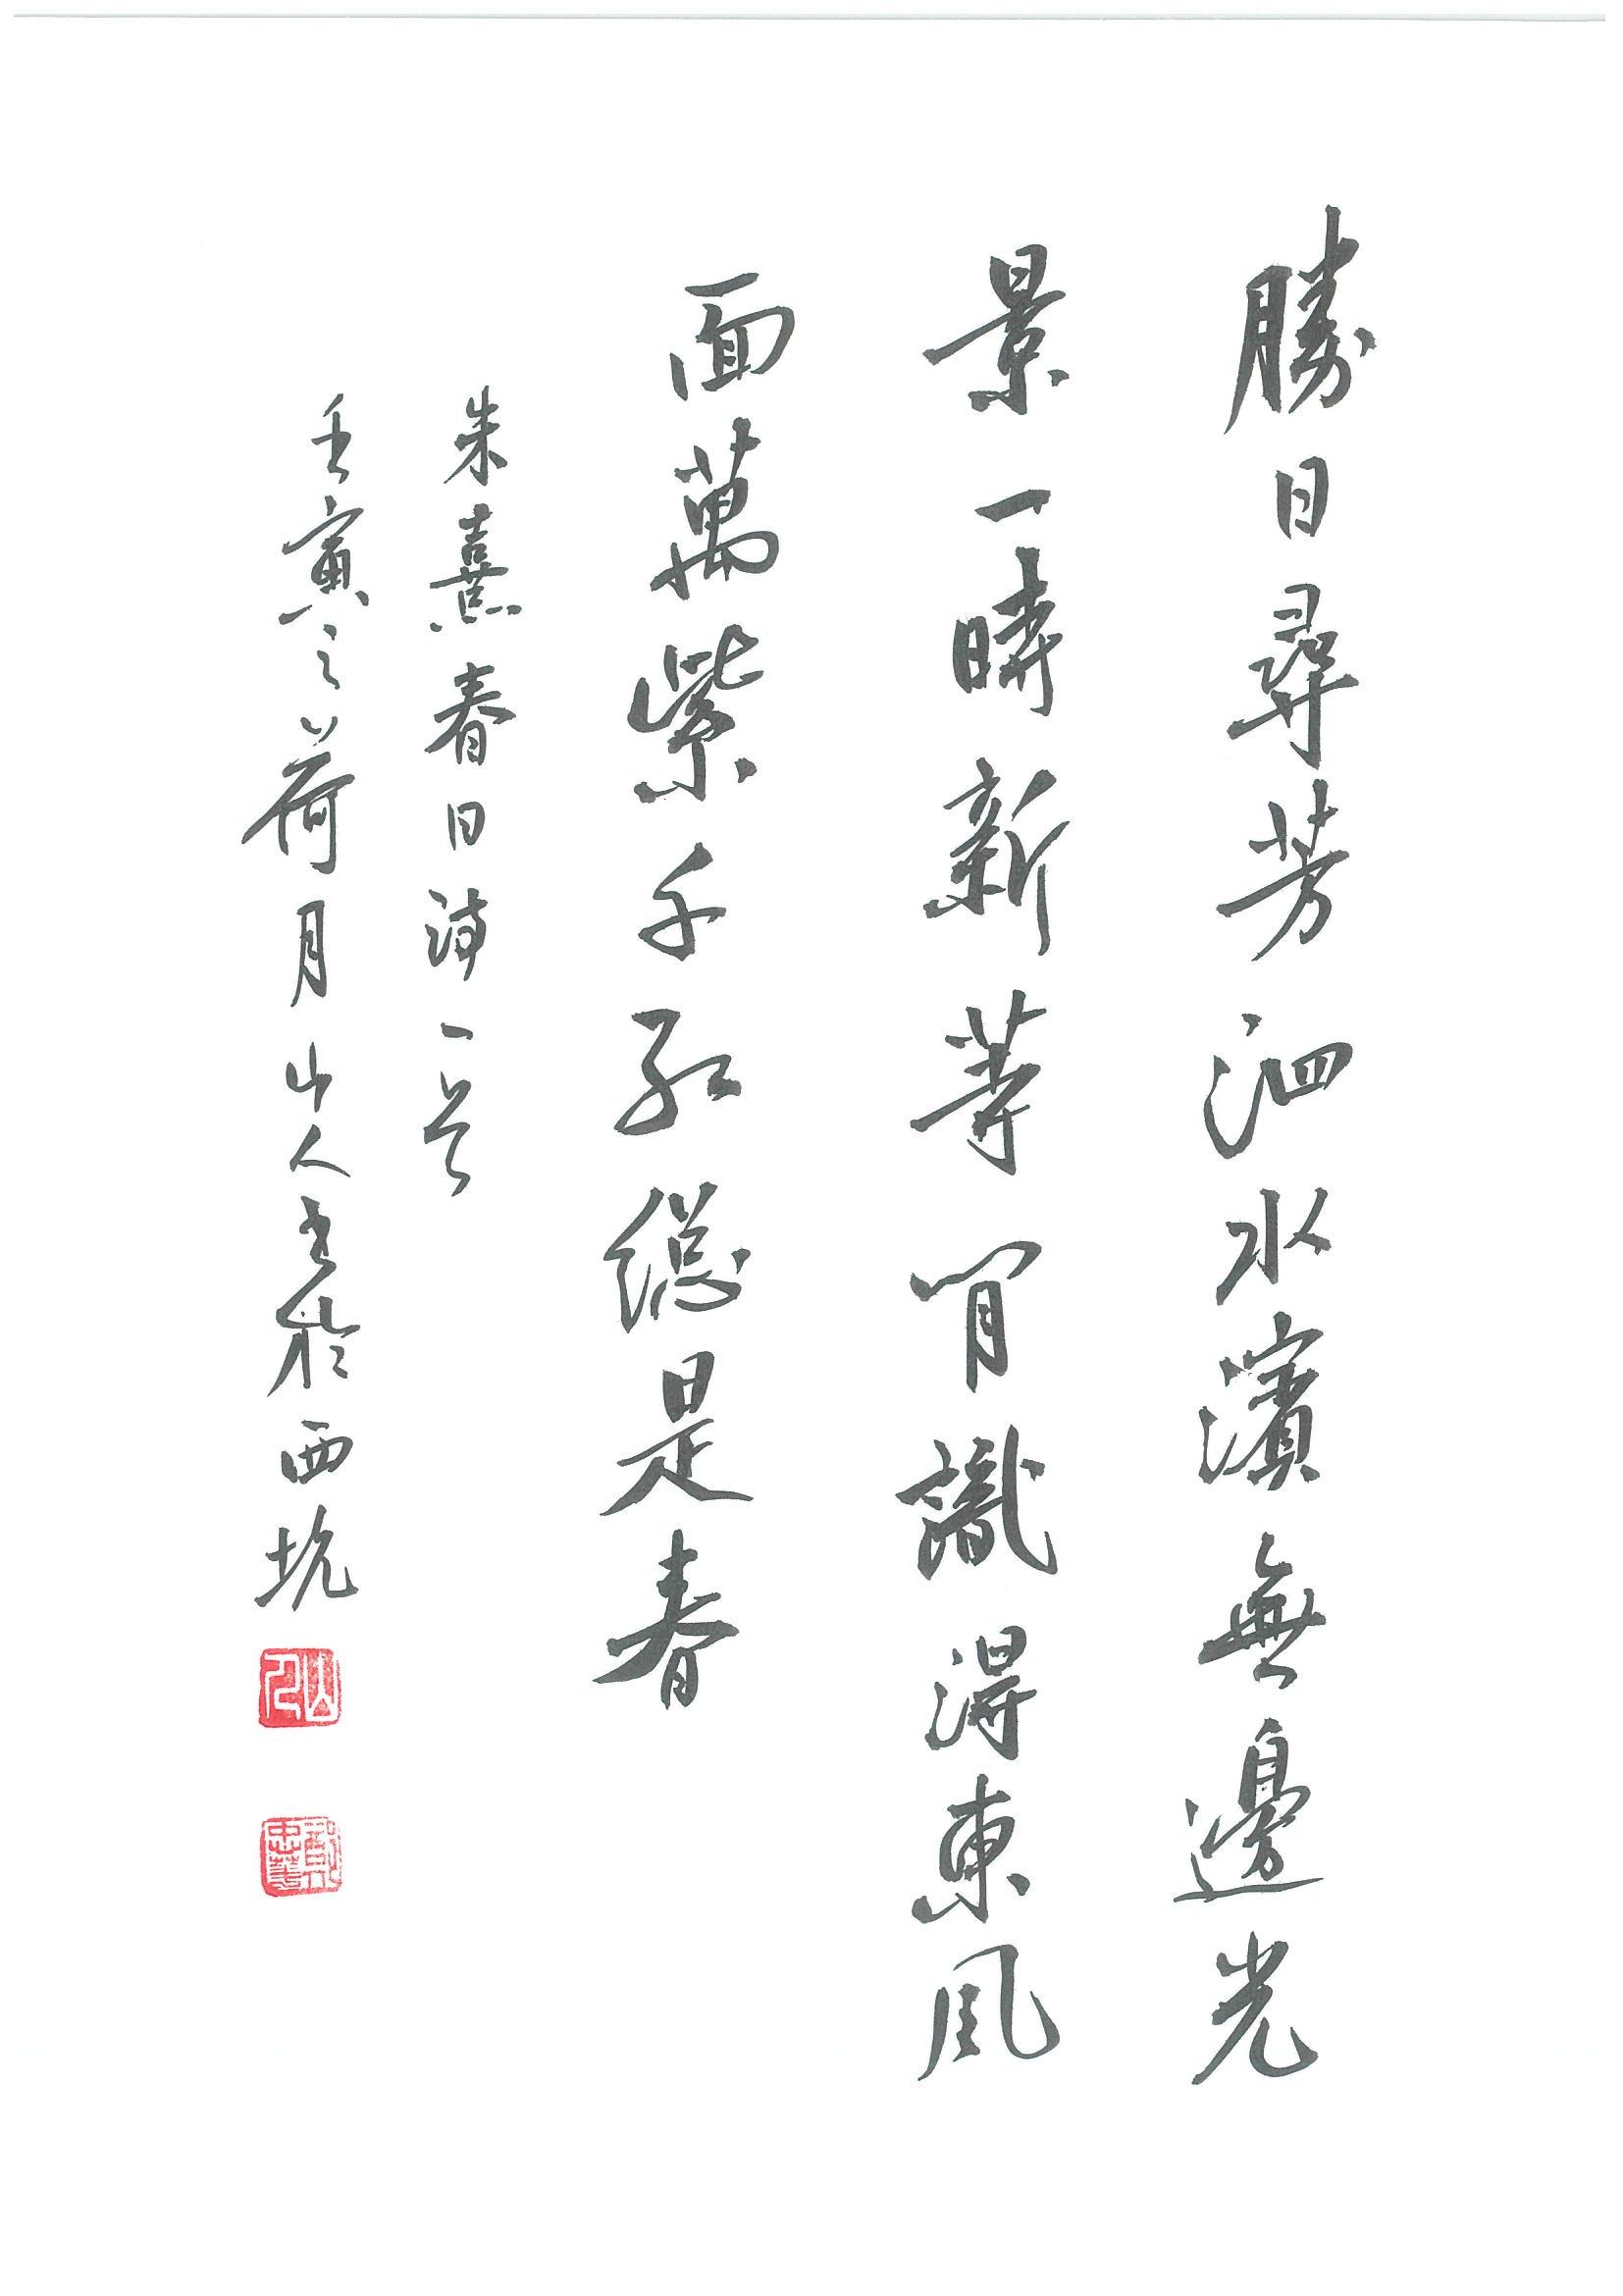 勝日尋芳泗水濱無邊光
景一時新等閒識得東風
面萬紫千紅總是春
朱熹春日詩一首
壬寅之荷月山人書於西坑
山人